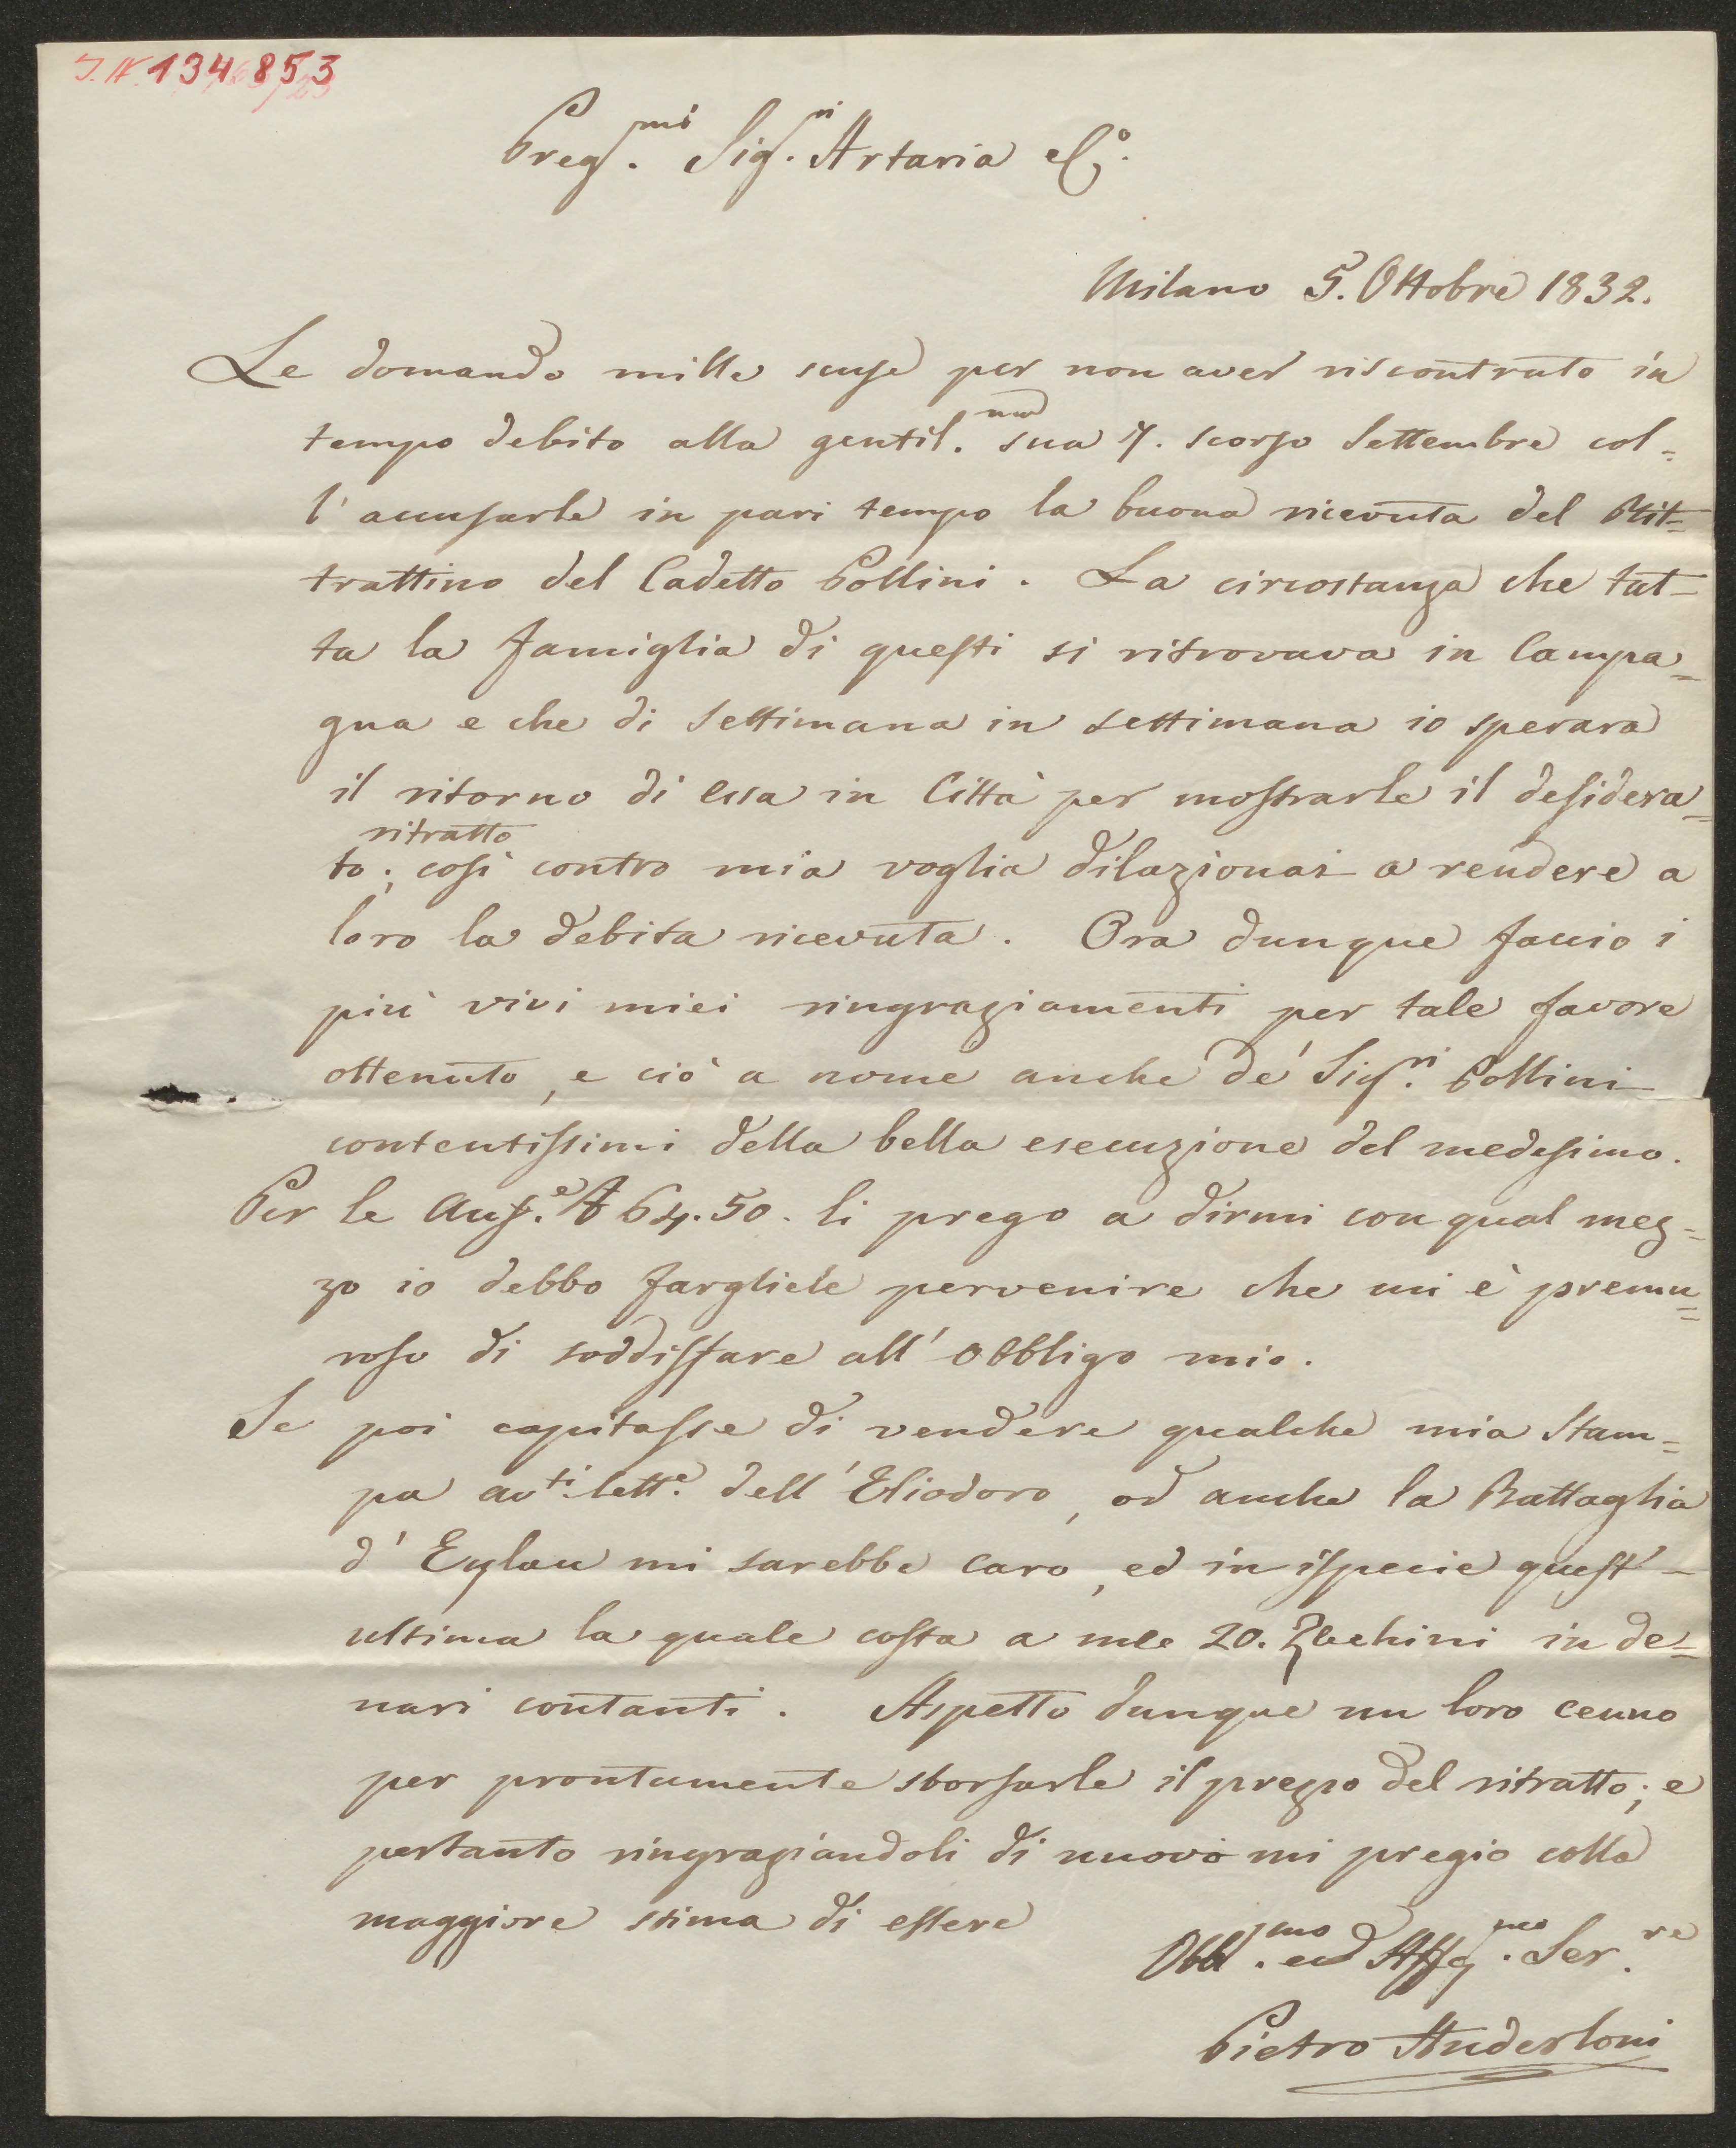 I.N. 134853
Preg.mi Sig.ri Artaria e C.o
Milano 5. Ottobre 1832.
Le domando mille scuse per non aver riscontrato in
tempo debito alla gentil.ma sua 7. scorso Settembre col=
l'accusarle in pari tempo la buona ricevuta del Rit=
trattino del Cadetto Pollini. La circostanza che tut=
ta la famiglia di questi si ritrovava in Campa=
gna e che di Settimana in settimana io sperava
il ritorno di essa in Città per mostrarle il desidera=
ritratto
to; così contro mia voglia dilazionai a rendere a
loro la debita ricevuta. Ora dunque faccio i
più vivi miei ringraziamenti per tale favore
ottenuto, e ciò a nome anche de' Sig.ri Pollini
contentissimi della bella esecuzione del medesimo.
Per le Aus.e 64.50. li prego a dirmi con qual mez=
zo io debbo fargliele pervenire che mi è premu=
roso di soddisfare all'obbligo mio.
Se poi capitasse di vendere qualche mia Stam=
pa av.ti lett.e dell'Eliodoro, od anche la Battaglia
d'Eylau mi sarebbe caro, ed in ispecie quest'=
ultima la quale costa a me 20. Zecchini in de=
nari contanti. Aspetto dunque un loro cenno
per prontamente sborsarle il prezzo del ritratto; e
pertanto ringraziandoli di nuovo mi pregio colla
maggiore stima di essere
Obb.mo ed Aff.mo Ser.re
Pietro Anderloni